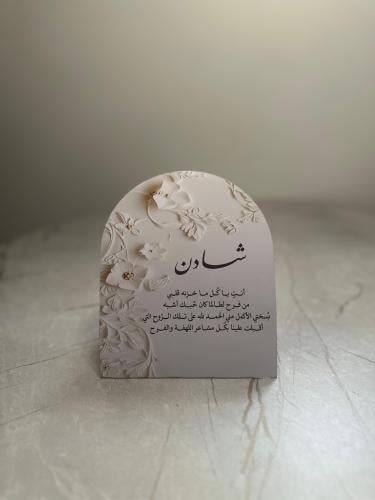 شادن
أنتِ يا كُل ما خزنه قلبي
من فرح لطالما كان حُبك أشبه
بنُسختي الأكمل مني الحمد لله على تلك الرُوح التي
أقبلت علينا بكُل مشاعر اللهفة والفرح